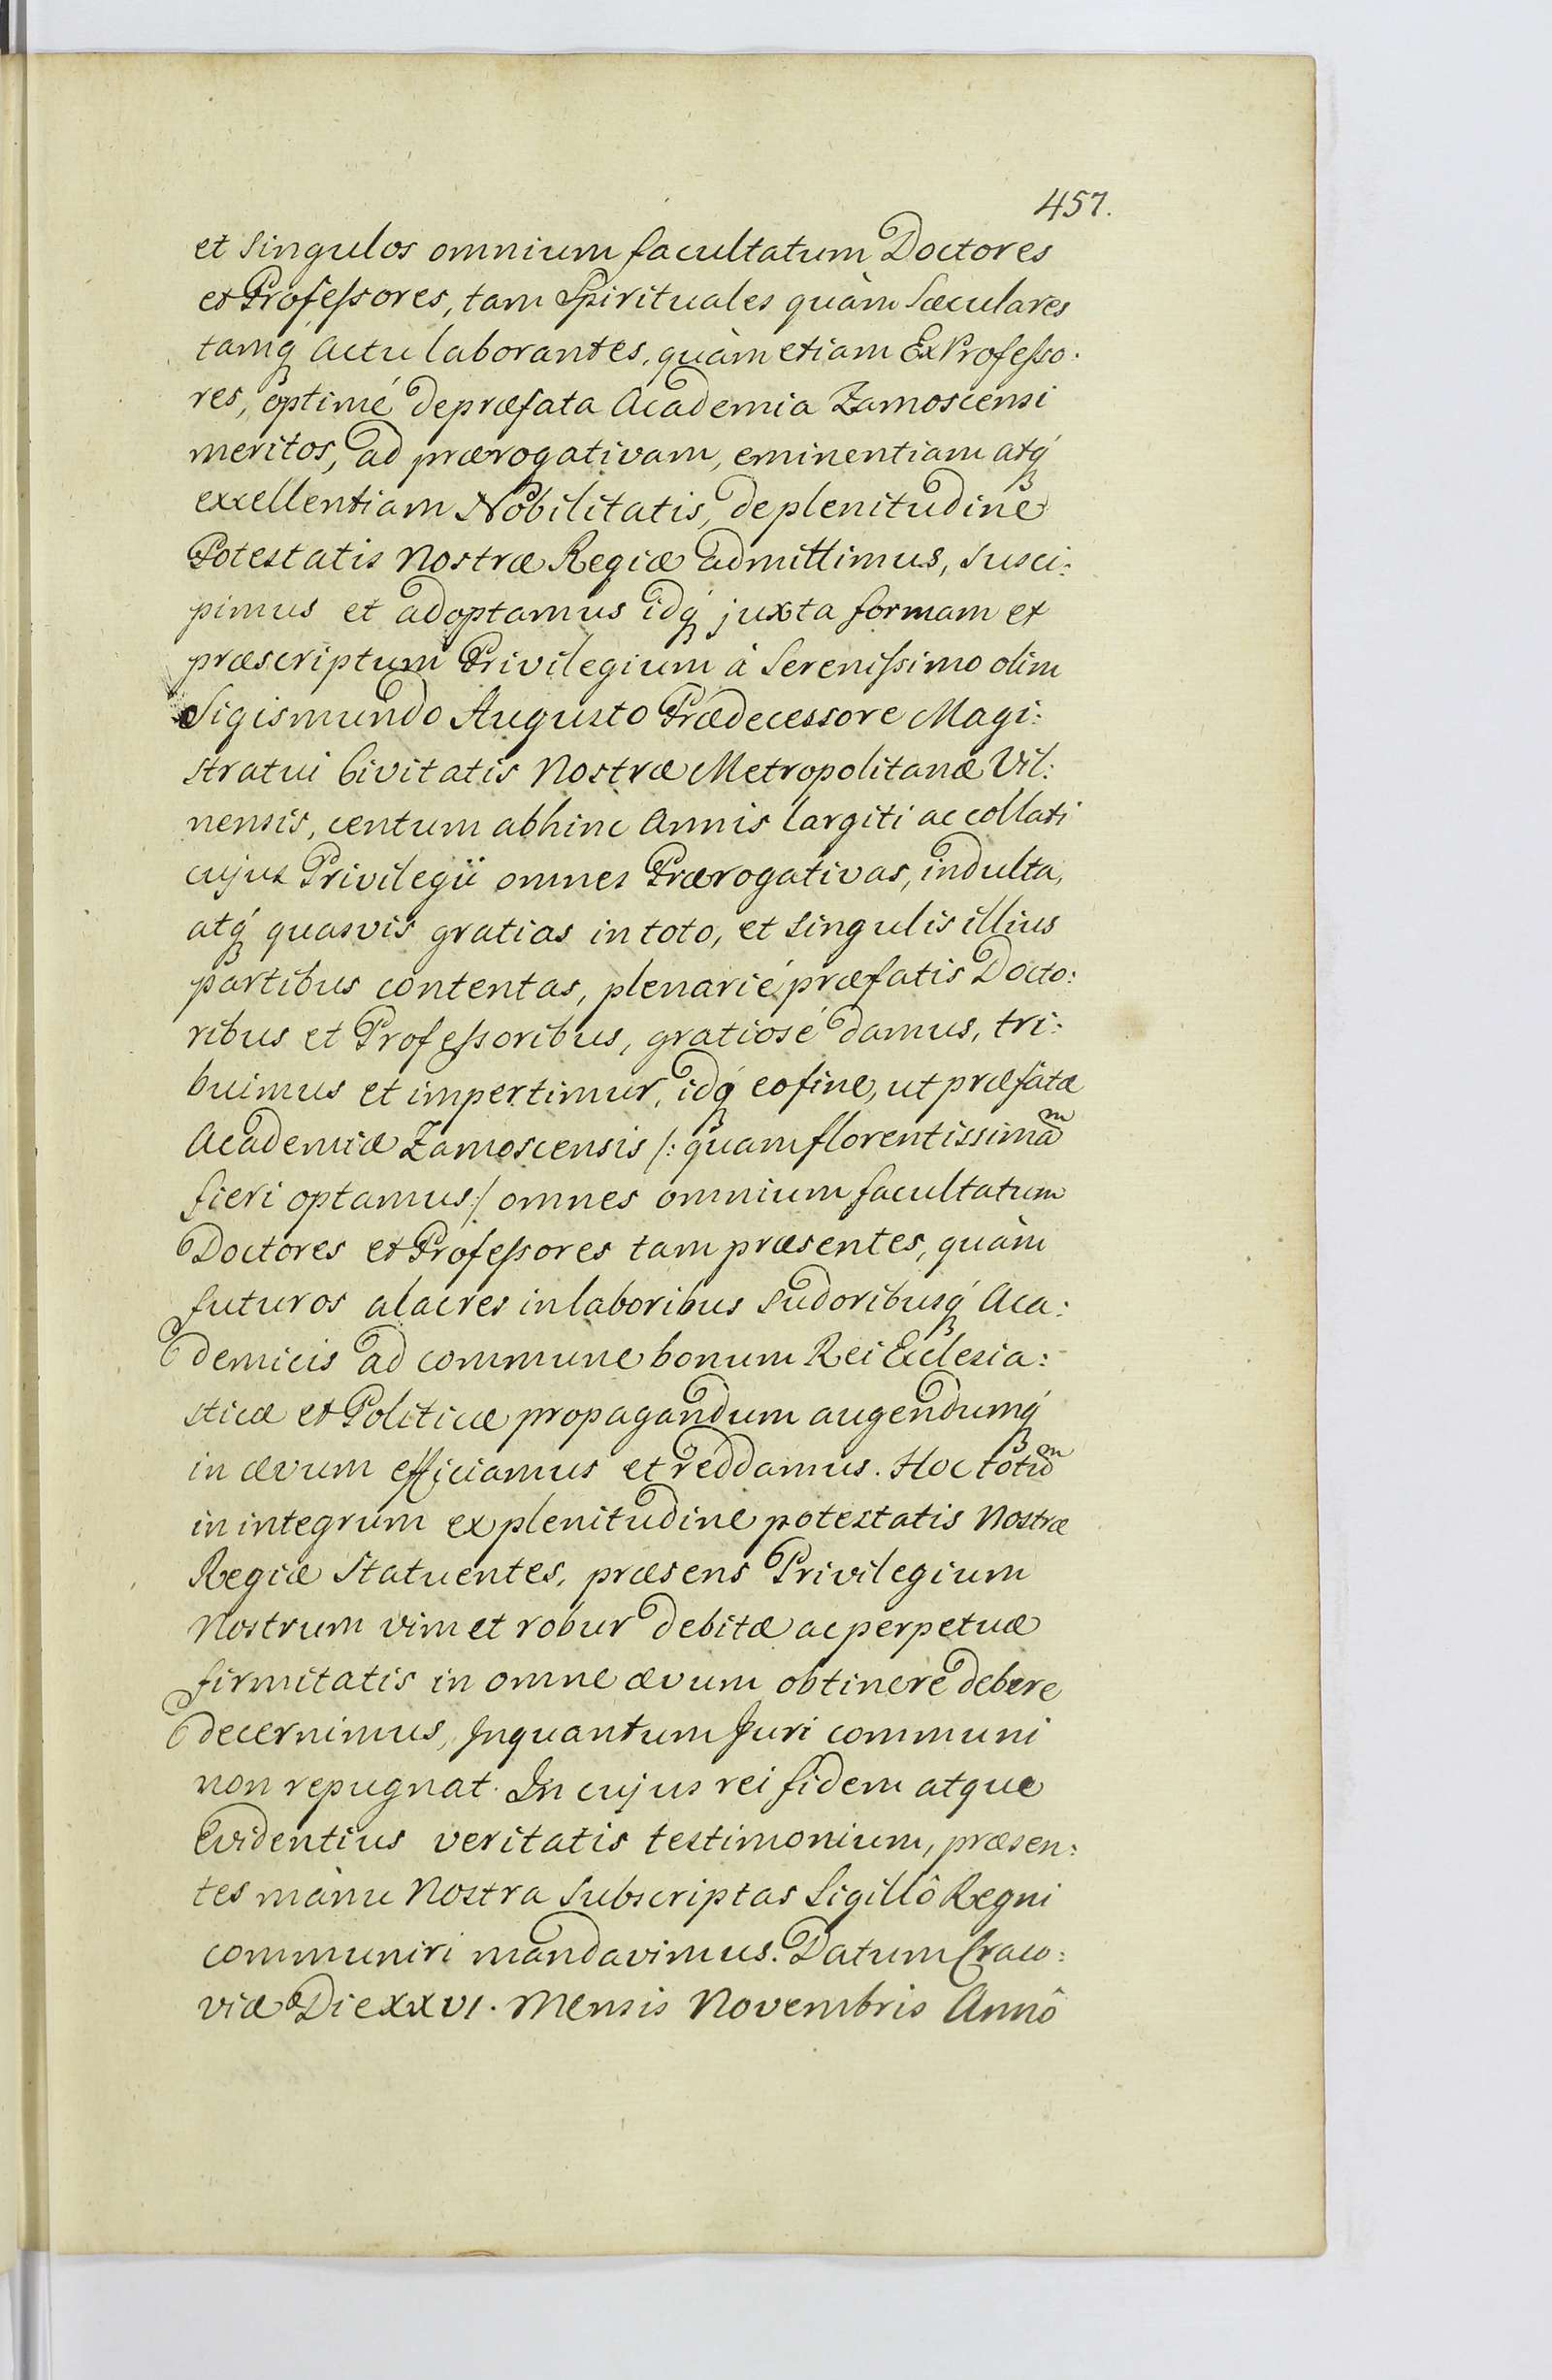 457.
et singulos omnium facultatum Doctores
et Profeſsores, tam Spirituales quàm Sæculares
tamq́ Actu laborantes, quàm etiam Ex Profeſso.
res, optimé de præfata Academia Zamoscensi
meritos, ad prærogativam, eminentiam atq́
excellentiam Nobilitatis, de plenitudine
Potestatis Nostræ Regiæ admittimus, susci:
pimus et adoptamus idq́ juxta formam et
præscriptum Privilegium à Sereniſsimo olim
Sigismundo Augusto Prædecessore Magi:
stratui Civitatis Nostræ Metropolitanæ Vil:
nensis, centum abhinc Annis largiti ac collati
cujus Privilegii omnes Prærogativas, indulta,
atq́ quasvis gratias in toto, et singulis illius
partibus contentas, plenarié præfatis Docto:
ribus et Profeſsoribus, gratiosé damus, tri:
buimus et impertimur, idq́ eo fine, ut præfatæ
Academiæ Zamoscensis /: quam florentissimaᵐ
fieri optamus :/ omnes omnium facultatum
Doctores et Profeſsores tam præsentes, quàm
futuros alacres in laboribus sudoribusq́ Aca:
demicis ad commune bonum Rei Ecclesia:
sticæ et Politicæ propagandum augendumq́
in ævum efficiamus et reddamus. Hoc totuᵐ
in integrum ex plenitudine potestatis Nostræ
Regiæ Statuentes, præsens Privilegium
Nostrum vim et robur debitæ ac perpetuæ
firmitatis in omne ævum obtinere debere
decernimus, Inquantum Juri communi
non repugnat. In cujus rei fidem atque
Evidentius veritatis testimonium, præsen:
tes mànu Nostra Subscriptas Sigillô Regni
communiri mandavimus. Datum Craco:
viæ Die XXVI. Mensis Novembris Annô